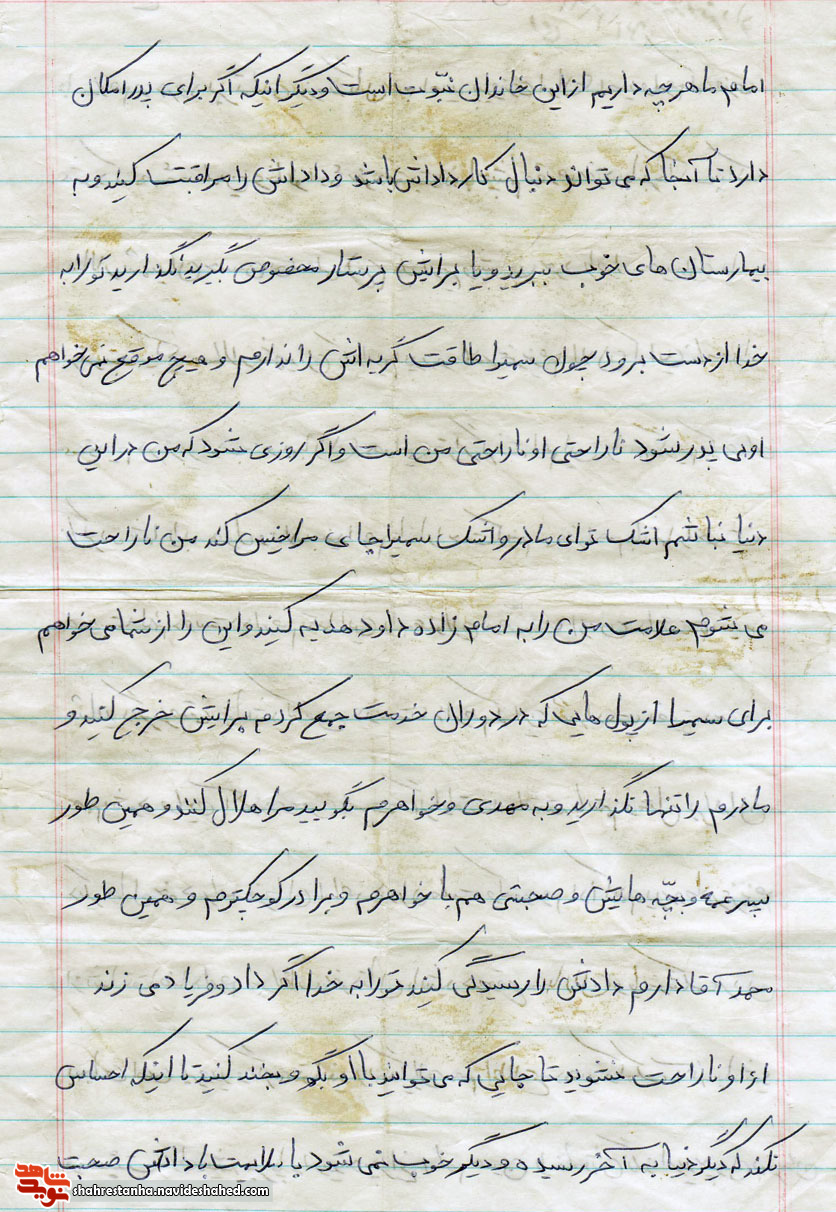 امام ما هر چه داریم از این خاندان نبّوت است و دیگر اینکه اگر برای پدر امکان
دارد تا آنجا که می تواند دنبال کار داداش باشد و داداش را مراقبت کنید و به
بیمارستان های خوب ببرید و یا برایش پرستار مخصوص بگیرید نگذارید تو را به
خدا از دست برود چون سمیرا طاقت گریه اش را ندارم و هیچ موقع نمی خواهم
او بی پدر شود ناراحتی او ناراحتی من است و اگر روزی شود که من در این
دنیا نباشم اشک تو ای مادر و اشک سمیرا جای مرا خیس کند من ناراحت
می شوم علامت من را به امام زاده داود هدیه کنید و این را از شما می خواهم
برای سمیرا از پول هایی که در دوران خدمت جمع کردم برایش خرج کنید و
مادرم را تنها نگذارید و به مهدی و خواهرم بگویید مرا هلال کنند و همین طور
پسر عمه و بچّه هایش و صحبتی هم با خواهرم و برادر کوچکترم و همین طور
محمد آقا دارم داداش را رسیدگی کنید تو را به خدا اگر داد و فریاد می زند
از او ناراحت نشوید تا جایی که می توانید با او بگو و بخند کنید تا اینکه احساس
نکند که دیگر دنیا به آخر رسیده و دیگر خوب نمی شود با ملایمت با داداش صحبت
شاهد
نوید
shahrestanha.navideshahed.com